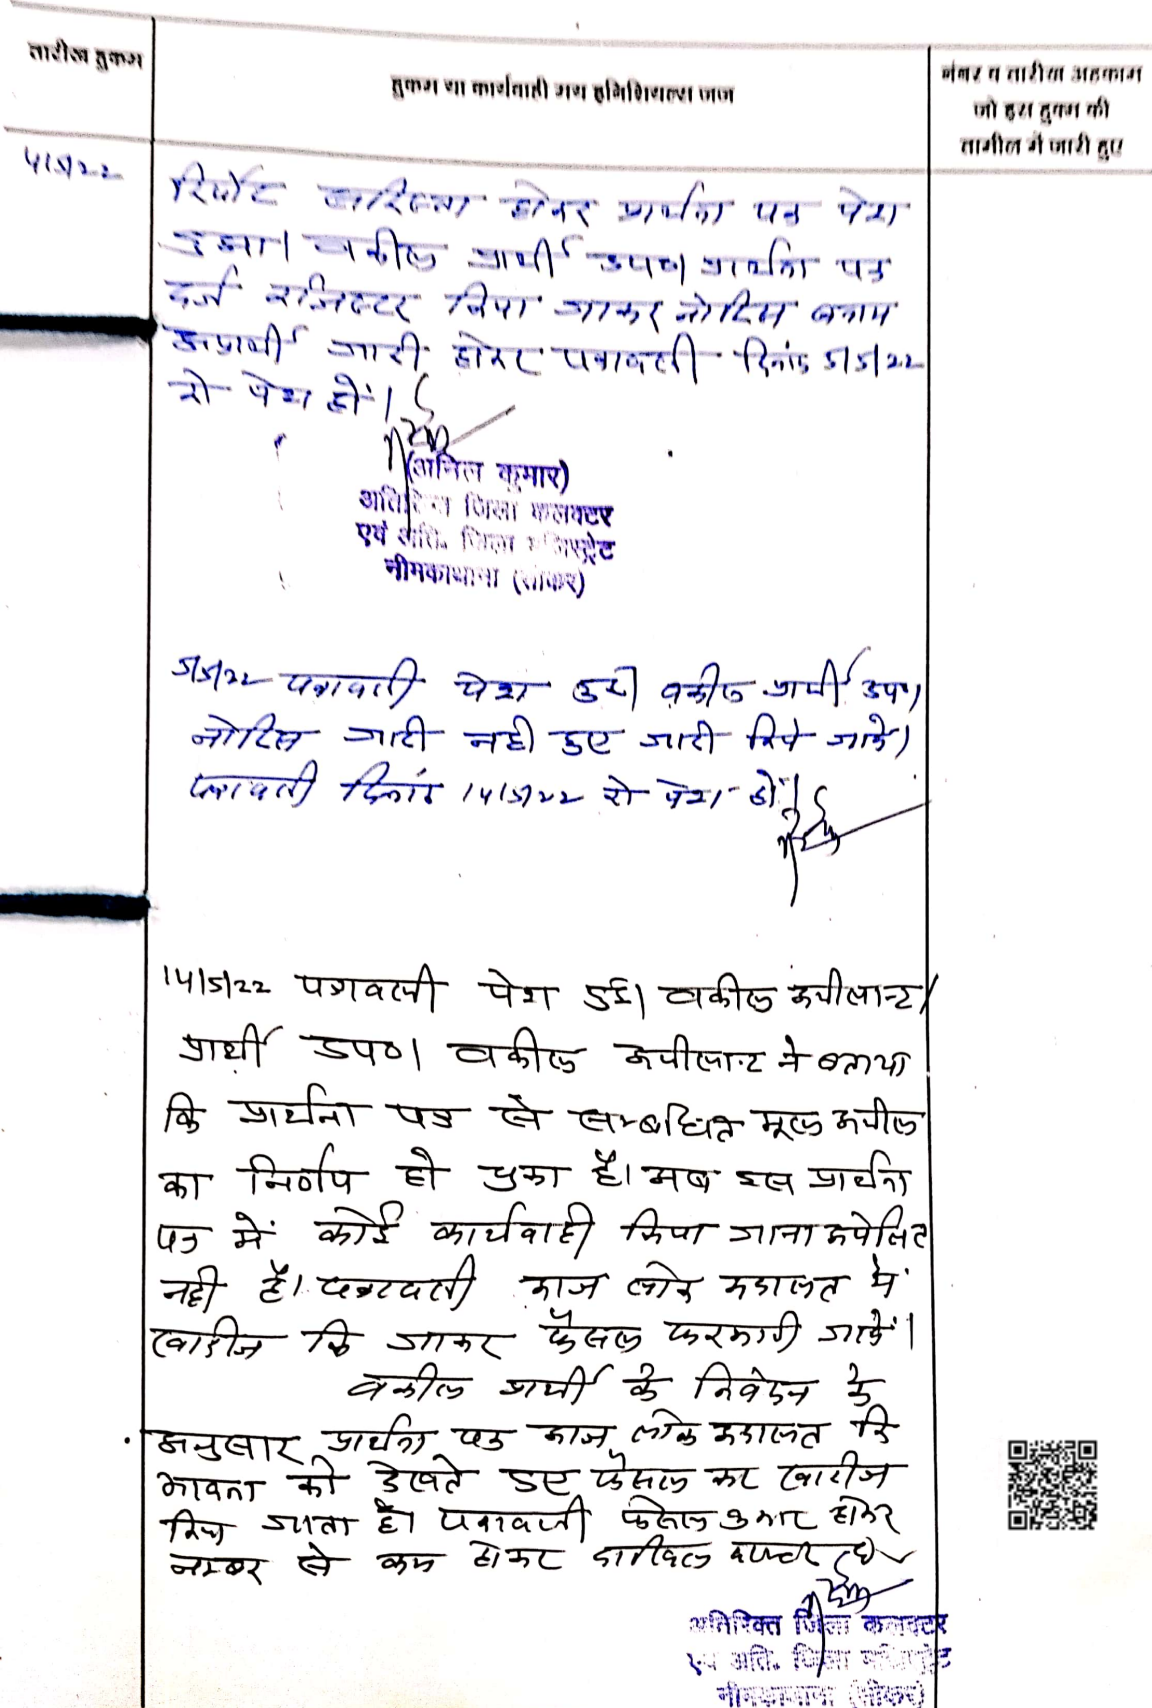 तारीख हुकम
हुकम या कार्यवाही मय इनिशियल्स जज
नंबर व तारीख अहकाम
जो इस हुक्म की
तामील में जारी हुए
4/5/22
रिपोर्ट सरिस्ता होकर प्रार्थना पत्र पेश
हुआ। वकील प्रार्थी उप०। प्रार्थना पत्र
दर्ज रजिस्टर किया जाकर नोटिस बनाम
अप्रार्थी जारी होकर पत्रावली दिनांक 5/5/22
को पेश हो।
(अनिल कुमार)
अतिरिक्त जिला कलक्टर
एवं अति. जिला मजिस्ट्रेट
नीमकाथाना (सीकर)
5/5/22 पत्रावली पेश हुई। वकील प्रार्थी उप०।
नोटिस जारी नही हुए जारी किये जावे।
पत्रावली दिनांक 14/5/22 को पेश हो।
14/5/22 पत्रावली पेश हुई। वकील अपीलान्ट/
प्रार्थी उप०। वकील अपीलान्ट ने बताया
कि प्रार्थना पत्र से सम्बधित मूल अपील
का निर्णय हो चुका है। अब इस प्रार्थना
पत्र में कोई कार्यवाही किया जाना अपेक्षित
नही है। पत्रावली आज लोक अदालत में
खारीज कि जाकर फैसल फरमायी जावें।
वकील प्रार्थी के निवेदन के
अनुसार प्रार्थना पत्र आज लोक अदालत कि
भावना को देखते हुए फैसल कर खारीज
किया जाता है। पत्रावली फैसल शुमार होकर
नम्बर से कम होकर दाखिल दफ्तर हो
अतिरिक्त जिला कलक्टर
एवं अति. जिला मजिस्ट्रेट
नीमकाथाना (सीकर)